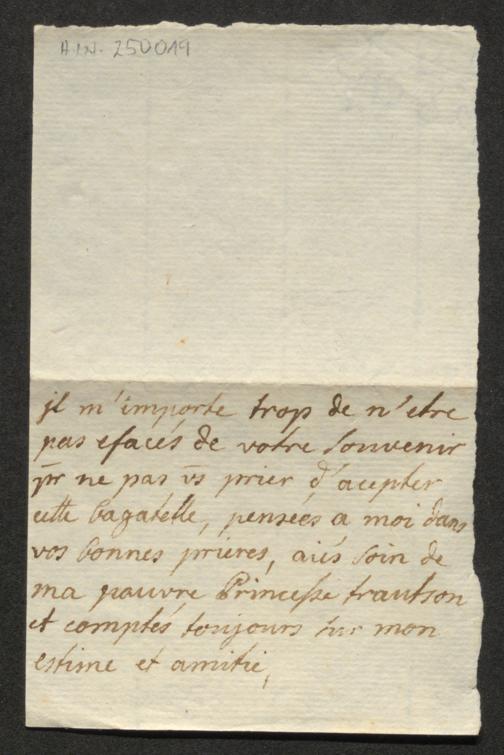 A.I.N. 250019
jl m'importe trop de n'etre
pas efacés de votre souvenir
pr ne pas vs prier d'acepter
cette bagatelle, pensées a moi dans
vos bonnes prieres, aiés soin de
ma pauvre Princesse trautson
et comptés toujours sur mon
estime et amitie,